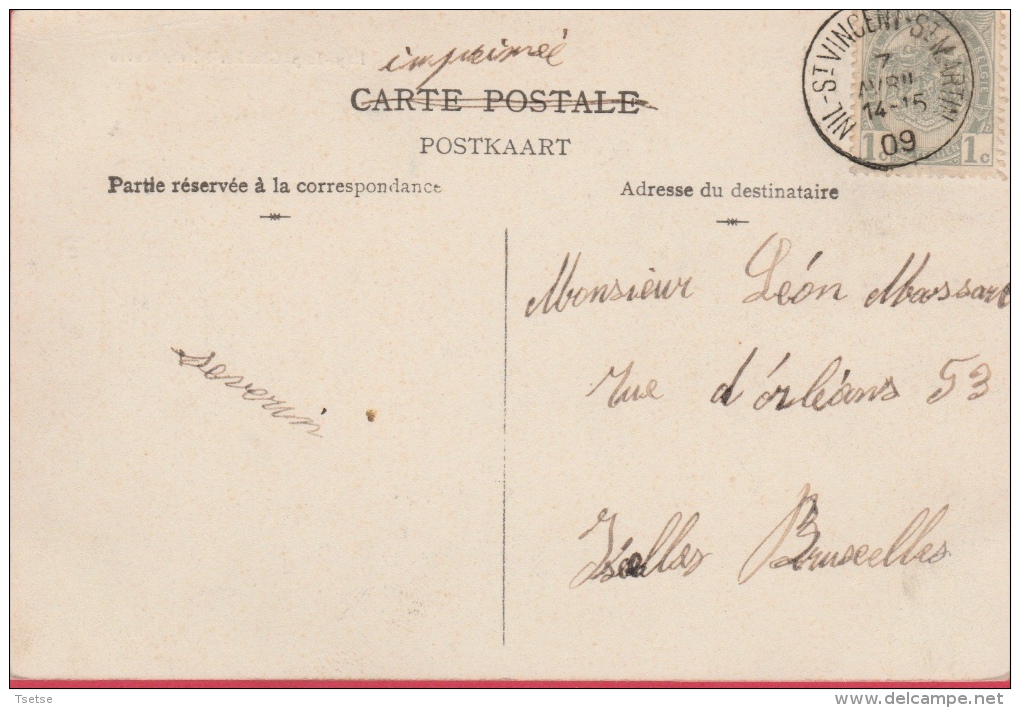 imprimeé
CARTE POSTALE
POSTKAART
NIL-ST VINCENT-ST MARTIN
7
AVRIL
14-15
09
BELGE
1c 1c
Partie réservée à la correspondance
Adresse du destinataire
severin
Monsieur Léon Massart
rue d'orléans 53
Bruxelles
Tsetse
www.delcampe.net